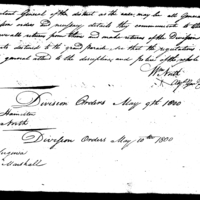 utant General of the district as the case may be, all General
sion orders and necessary details they communicate to the
will return from them and make returns of the Division
ate district to the grand parade. In that the regulations
general extend to the discipline and police of the whole
Wm North
Adjt Gen
Division Orders May 9th 1800
Hamilton
North
Division Orders May 10th 1800
Marshall